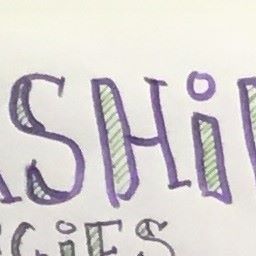 SHi
GiES